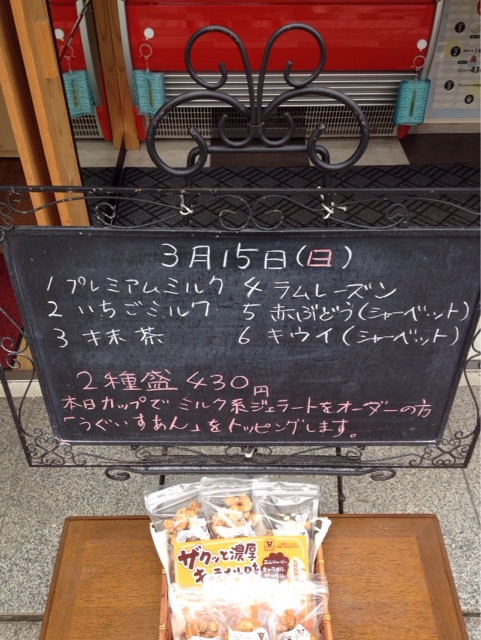 3月15日(日)
1 プレミアムミルク 4 ラムレーズン
2 いちごミルク 5 赤ぶどう(シャーベット)
3 抹茶 6 キウイ(シャーベット)
2種盛 430円
本日カップでミルク系ジェラートをオーダーの方
「うぐいすあん」をトッピングします。
ザクッと濃厚